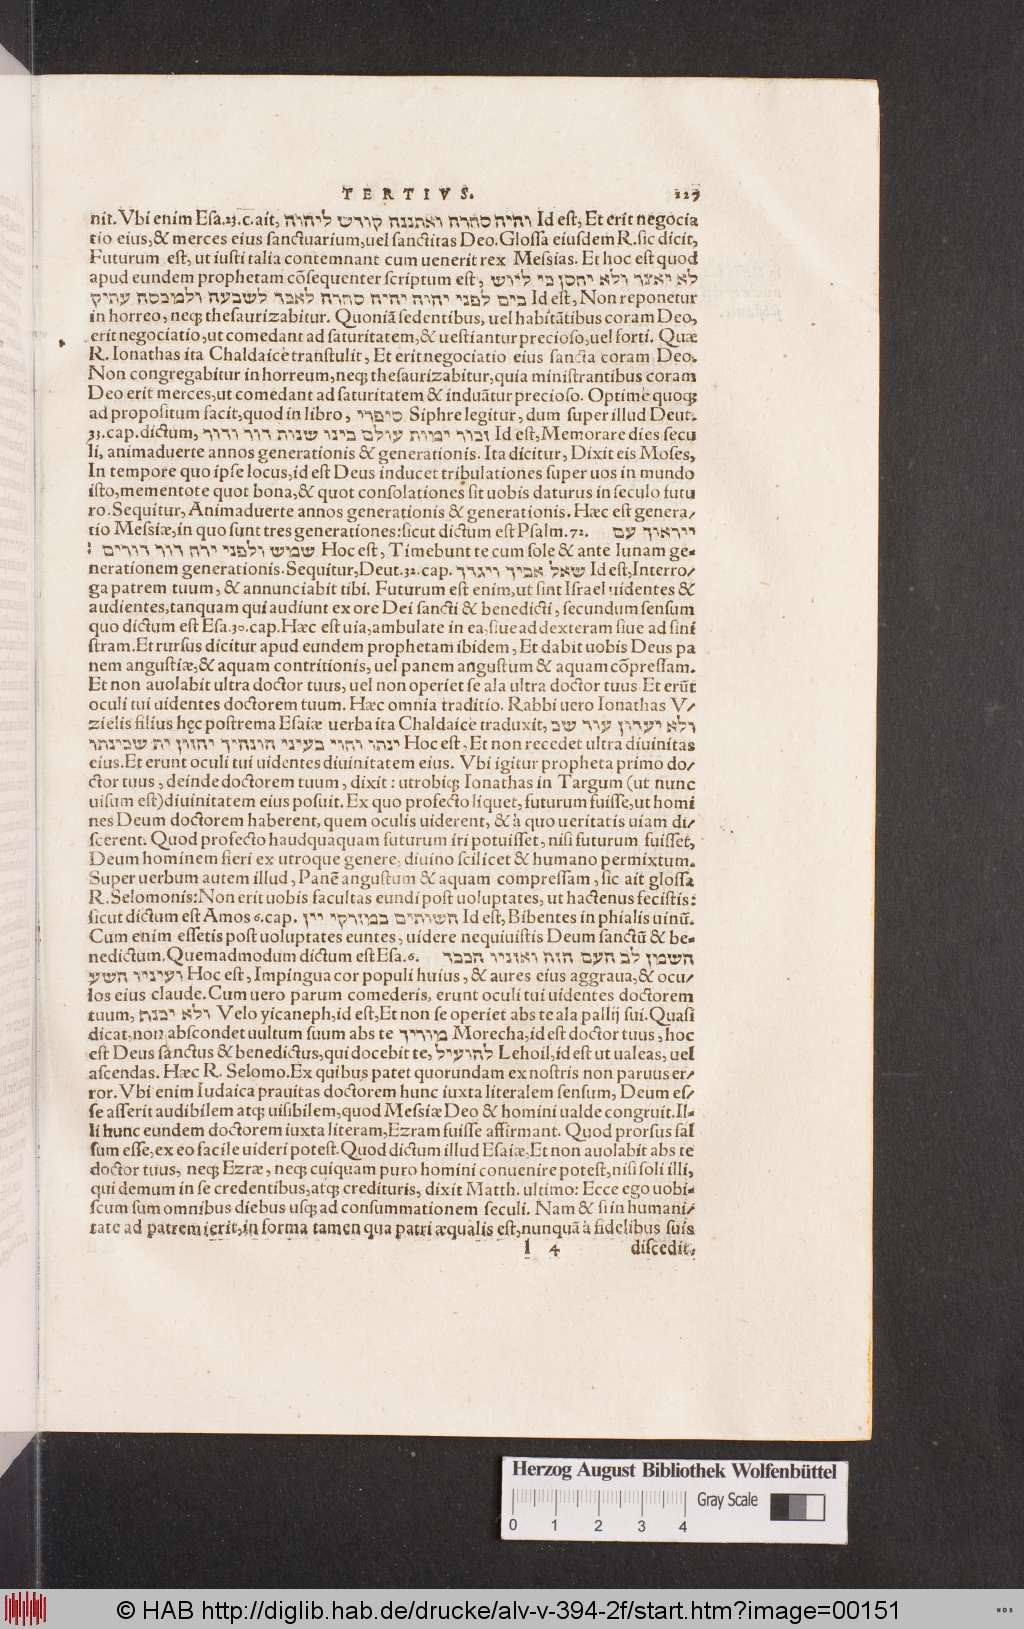 TERTIVS. 127
nit. Vbi enim Esa.23.c.ait, והיה סחרה ואתננה קודש ליהוה Id est, Et erit negocia
tio eius, & merces eius sanctuarium, uel sanctitas Deo. Glossa eiusdem R. sic dicit,
Futurum est, ut iusti talia contemnant cum uenerit rex Messias. Et hoc est quod
apud eundem prophetam cõsequenter scriptum est, לא יאצר ולא יחסן כי ליוש
בים לפני יהוה יהיה סחרה לאכל לשבעה ולמכסה עתיק Id est, Non reponetur
in horreo, neq; thesaurizabitur. Quoniã sedentibus, uel habitãtibus coram Deo,
erit negociatio, ut comedant ad saturitatem, & uestiantur precioso, uel forti. Quæ
R. Ionathas ita Chaldaicè transtulit, Et erit negociatio eius sancta coram Deo.
Non congregabitur in horreum, neq; thesaurizabitur, quia ministrantibus coram
Deo erit merces, ut comedant ad saturitatem & induãtur precioso. Optimè quoq;
ad propositum facit, quod in libro, סיפרי Siphre legitur, dum super illud Deut.
33.cap.dictum, זכור ימות עולם בינו שנות דור ודור Id est, Memorare dies secu
li, animaduerte annos generationis & generationis. Ita dicitur, Dixit eis Moses,
In tempore quo ipse locus, id est Deus inducet tribulationes super uos in mundo
isto, mementote quot bona, & quot consolationes sit uobis daturus in seculo futu
ro. Sequitur, Animaduerte annos generationis & generationis. Hæc est genera/
tio Messiæ, in quo sunt tres generationes: sicut dictum est Psalm.72. ייראוך עם
שמש ולפני ירח דור דורים : Hoc est, Timebunt te cum sole & ante lunam ge-
nerationem generationis. Sequitur, Deut.32.cap. שאל אביך ויגדך Id est, Interro/
ga patrem tuum, & annunciabit tibi. Futurum est enim, ut sint Israel uidentes &
audientes, tanquam qui audiunt ex ore Dei sancti & benedicti, secundum sensum
quo dictum est Esa.30.cap. Hæc est uia, ambulate in ea, siue ad dexteram siue ad sini
stram. Et rursus dicitur apud eundem prophetam ibidem, Et dabit uobis Deus pa
nem angustiæ, & aquam contritionis, uel panem angustum & aquam cõpressam.
Et non auolabit ultra doctor tuus, uel non operiet se ala ultra doctor tuus Et erũt
oculi tui uidentes doctorem tuum. Hæc omnia traditio. Rabbi uero Ionathas V/
zielis filius hęc postrema Esaiæ uerba ita Chaldaicè traduxit, ולא יעדון עוד שכ
ינתו ויהוי בעיני חונתיך יחזון ית שכינתו Hoc est, Et non recedet ultra diuinitas
eius. Et erunt oculi tui uidentes diuinitatem eius. Vbi igitur propheta primo do/
ctor tuus, deinde doctorem tuum, dixit: utrobiq; Ionathas in Targum (ut nunc
uisum est) diuinitatem eius posuit. Ex quo profecto liquet, futurum fuisse, ut homi
nes Deum doctorem haberent, quem oculis uiderent, & à quo ueritatis uiam di/
scerent. Quod profecto haudquaquam futurum iri potuisset, nisi futurum fuisset,
Deum hominem fieri ex utroque genere, diuino scilicet & humano permixtum.
Super uerbum autem illud, Panẽ angustum & aquam compressam, sic ait glossa
R. Selomonis: Non erit uobis facultas eundi post uoluptates, ut hactenus fecistis:
sicut dictum est Amos 6.cap. השותים במזרקי יין Id est, Bibentes in phialis uinũ.
Cum enim essetis post uoluptates euntes, uidere nequiuistis Deum sanctũ & be-
nedictum. Quemadmodum dictum est Esa.6. השמן לב העם הזה ואזניו הכבד
ועיניו השע Hoc est, Impingua cor populi huius, & aures eius aggraua, & ocu-
los eius claude. Cum uero parum comederis, erunt oculi tui uidentes doctorem
tuum, ולא יכנף Velo yicaneph, id est, Et non se operiet abs te ala pallij sui. Quasi
dicat, non abscondet uultum suum abs te מוריך Morecha, id est doctor tuus, hoc
est Deus sanctus & benedictus, qui docebit te, להועיל Lehoil, id est ut ualeas, uel
ascendas. Hæc R. Selomo. Ex quibus patet quorundam ex nostris non paruus er/
ror. Vbi enim Iudaica prauitas doctorem hunc iuxta literalem sensum, Deum es/
se asserit audibilem atq; uisibilem, quod Messiæ Deo & homini ualde congruit. Il-
li hunc eundem doctorem iuxta literam, Ezram fuisse affirmant. Quod prorsus fal
sum esse, ex eo facile uideri potest. Quod dictum illud Esaiæ, Et non auolabit abs te
doctor tuus, neq; Ezræ, neq; cuiquam puro homini conuenire potest, nisi soli illi,
qui demum in se credentibus, atq; credituris, dixit Matth. ultimo: Ecce ego uobi-
scum sum omnibus diebus usq; ad consummationem seculi. Nam & si in humani/
tate ad patrem ierit, in forma tamen qua patri æqualis est, nunquã à fidelibus suis
l 4 discedit.
Herzog August Bibliothek Wolfenbüttel
Gray Scale
0 1 2 3 4
© HAB http://diglib.hab.de/drucke/alv-v-394-2f/start.htm?image=00151